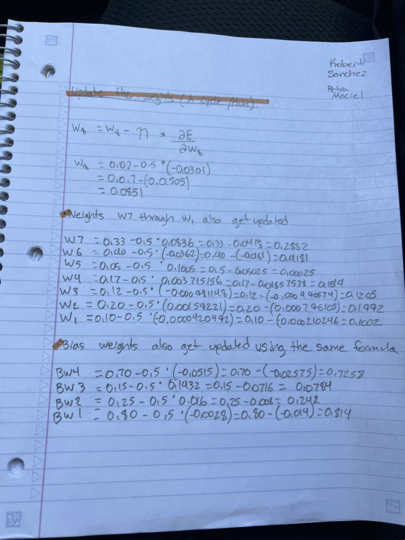 Robert
Sanchez
Maciel
Update the weights
W8 = W8 - η * ∂E
∂W8
W8 = 0.07-0.5*(-0.0301)
= 0.07-(-0.01505)
= 0.0851
Weights W7 through W1 also get updated
W7 = 0.33-0.5·0.0836=0.33-0.0418=0.2882
W6 = 0.40-0.5·(-0.0362)=0.40-(-0.0181)=0.4181
W5 = 0.05-0.5·0.1005=0.5-0.05025=0.00025
W4 = 0.17-0.5·0.003715156=0.17-0.001857578=
W3 = 0.12-0.5· =0.12- =0.1205
W2 = 0.20-0.5·(0.00159221)=0.20-(0.000796105)=0.1992
W1 = 0.10-0.5·(-0.000420492)=0.10-(-0.000210246)=0.1002
Bias weights also get updated using the same formula
BW4 = 0.70-0.5·(-0.0515)=0.70-(-0.02575)=0.7258
BW3 = 0.15-0.5·0.1432=0.15-0.0716= 0.0784
BW2 = 0.25-0.5·0.016=0.25-0.008=0.242
BW1 = 0.80-0.5·(-0.0028)=0.80-(-0.014)=0.814